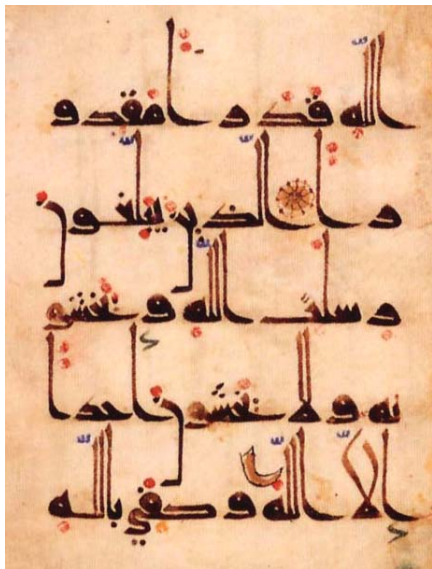 الله قدرا مقدو
را الذين يبلغون
رسلت الله ويخشو
نه ولا يخشون احدا
الا الله وكفي بالله